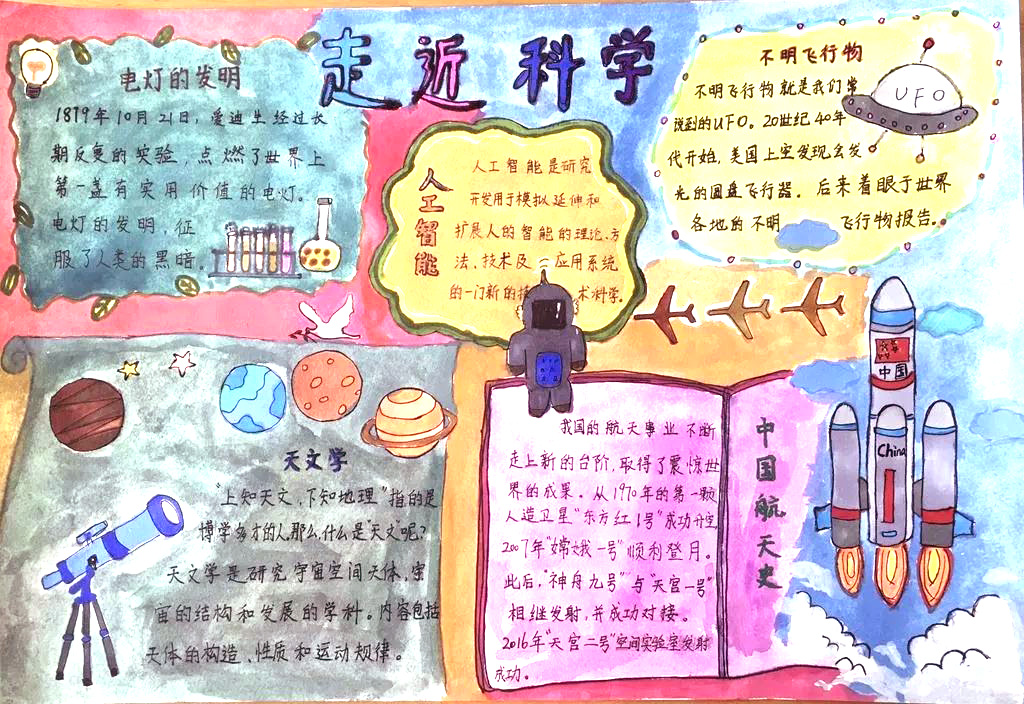 走近科学
电灯的发明
1879年10月21日,爱迪生经过长
期反复的实验,点燃了世界上
第一盏有实用价值的电灯。
电灯的发明,征
服了人类的黑暗。
人工智能
人工智能是研究
开发用于模拟延伸和
扩展人的智能的理论、方
法、技术及应用系统
的一门新的技术科学。
不明飞行物
不明飞行物就是我们常
说到的UFO。20世纪40年
代开始,美国上空发现会发
光的圆盘飞行器。后来着眼于世界
各地的不明飞行物报告。
UFO
天文学
"上知天文,下知地理"指的是
博学多才的人,那么,什么是"天文"呢?
天文学是研究宇宙空间天体,宇
宙的结构和发展的学科。内容包括
天体的构造、性质和运动规律。
我国的航天事业不断
走上新的台阶,取得了震惊世
界的成果。从1970年的第一颗
人造卫星"东方红1号"成功升空,
2007年"嫦娥一号"顺利登月。
此后,"神舟九号"与"天宫一号"
相继发射,并成功对接。
2016年"天宫二号"空间实验室发射
成功。
中国航天史
中国
China